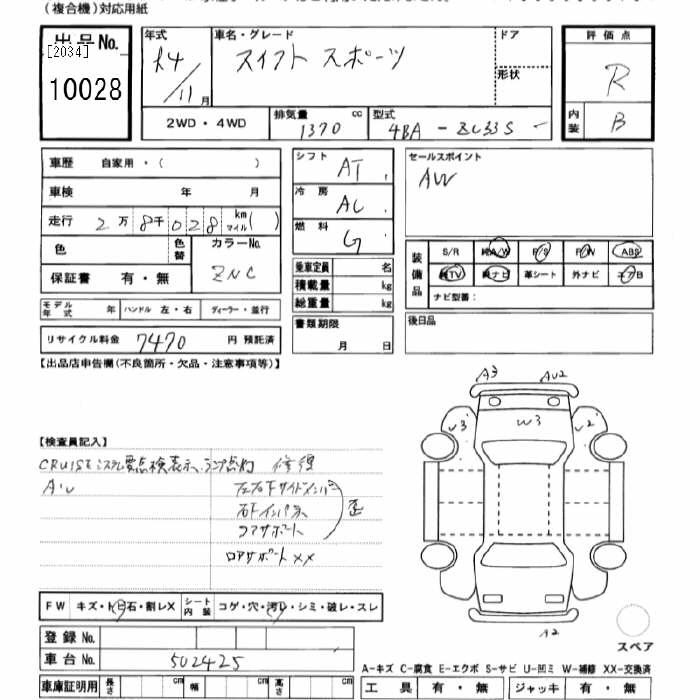 (複合機)対応用紙
出品No. [2034] 10028
年式 R4/11月
車名・グレード スイフト スポーツ
ドア
形状
評価点 R
内装 B
2WD・4WD
排気量 1370 cc
型式 4BA-ZC33S-
車歴 自家用・( )
車検 年 月
走行 2万8千028 km マイル( )
色 色替 カラーNo. ZNC
保証書 有・無
モデル年式 年 ハンドル 左・右 ディーラー・並行
リサイクル料金 7470 円 預託済
シフト AT
冷房 AC
燃料 G
乗車定員 名
積載量 kg
総重量 kg
書類期限 月 日
セールスポイント
AW
装備品 S/R 純A/W P/S P/W ABS
純TV 純ナビ 革シート 外ナビ エアB
ナビ型番:
後日品
【出品店申告欄(不良箇所・欠品・注意事項等)】
【検査員記入】
CRUISEシステム要点検表示、ランプ点灯 修復
左右F サイドメンバー
右Fインパネ
コアサポート
歪
ロアサポートXX
A3 AU2
U3 W3 U2
A2
FW キズ・トビ石・割レX シート内装 コゲ・穴・汚レ・シミ・破レ・スレ
登録No.
車台No. 502425
車庫証明用 長さ cm 幅 cm 高さ cm
スペア
A-キズ C-腐食 E-エクボ S-サビ U-凹ミ W-補修 XX-交換済
工具 有・無 ジャッキ 有・無